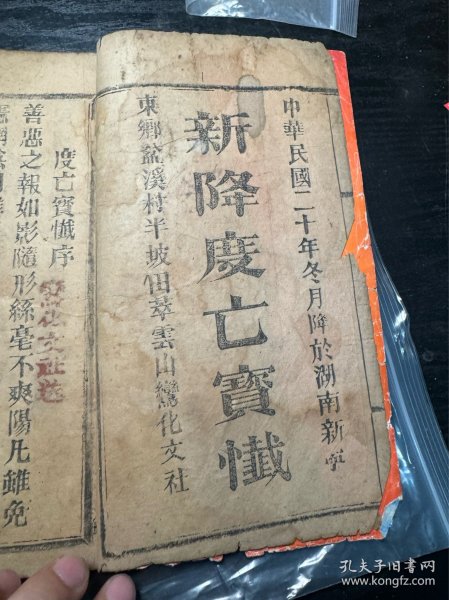 中華民國二十年冬月降於湖南新寧
新降度亡寶懺
東鄉盆溪村半坡田萃雲山鸞化文社
度亡寶懺序
善惡之報如影隨形絲毫不爽陽凡雖免
孔夫子旧书网
www.kongfz.com